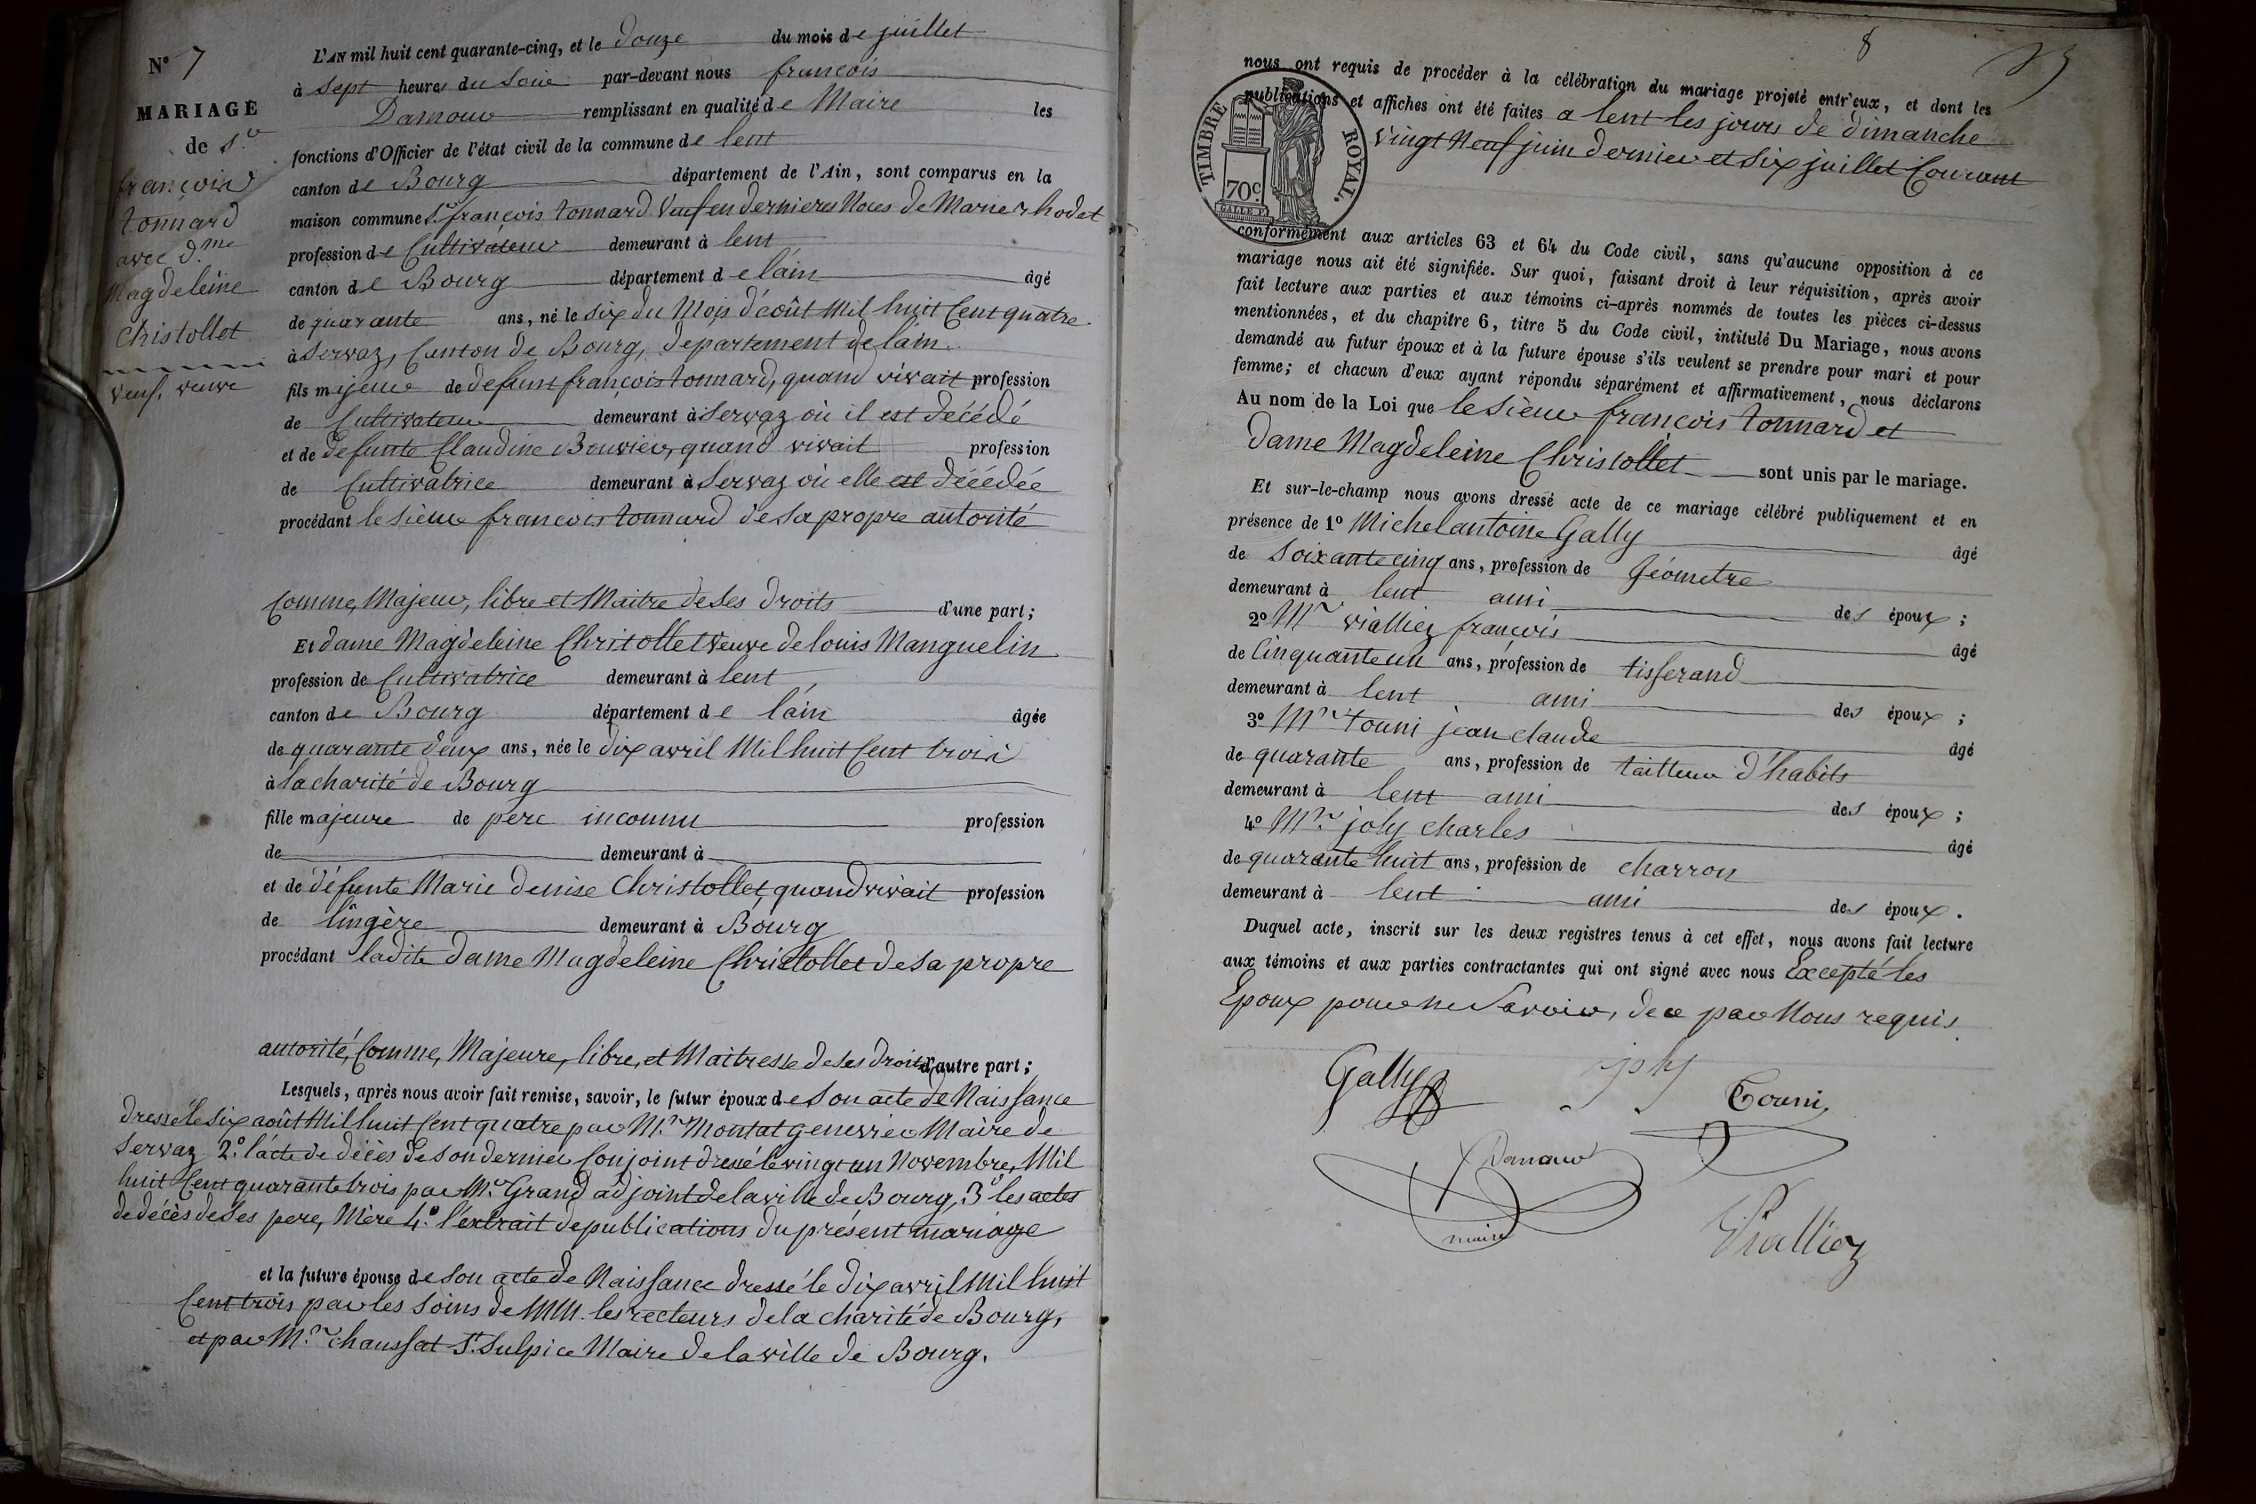 N° 7
MARIAGE
de S.r
françois
tonnard
avec d.me
Magdeleine
Christollet
veuf, veuve
L'AN mil huit cent quarante-cinq, et le douze du mois de juillet
à sept heures du soir par-devant nous françois
Damour remplissant en qualité de Maire les
fonctions d'Officier de l'état civil de la commune de lent
canton de Bourg département de l'Ain, sont comparus en la
maison commune S.r françois tonnard Veuf en dernieres Noces de Marie rhodet
profession de Cultivateur demeurant à lent
canton de Bourg département de l'ain âgé
de quarante ans, né le six du Mois d'août Mil huit Cent quatre
à Servaz, Canton de Bourg, département de l'ain
fils majeur de defunt françois tonnard, quand vivait profession
de Cultivateur demeurant à Servaz où il est décédé
et de defunte Claudine Bouvier, quand vivait profession
de Cultivatrice demeurant à Servaz où elle est décédée
procédant le Sieur francois tonnard de sa propre autorité
Comme, Majeur, libre et Maitre de Ses droits d'une part;
Et dame Magdeleine Christollet veuve de louis Manguelin
profession de Cultivatrice demeurant à lent
canton de Bourg département de l'ain âgée
de quarante deux ans, née le dix avril Mil huit Cent trois
à la charité de Bourg
fille majeure de pere inconnu profession
de demeurant à
et de défunte Marie denise Christollet, quand vivait profession
de lingère demeurant à Bourg
procédant ladite dame Magdeleine Christollet de sa propre
autorité, Comme, Majeure, libre, et Maitresse de ses droits d'autre part;
Lesquels, après nous avoir fait remise, savoir, le futur époux de Son acte de Naissance
dressé le Six août Mil huit Cent quatre par M.r Montat genevrier Maire de
Servaz 2.° l'acte de décès de Son dernier Conjoint dressé le vingt un Novembre, Mil
huit Cent quarante trois par M.r Grand adjoint de la ville de Bourg, 3° les actes
de décès de Ses pere, Mère 4.° l'extrait de publications du présent mariage
et la future épouse de Son acte de Naissance dressé le dix avril Mil huit
Cent trois par les soins de MM. les recteurs de la charité de Bourg,
et par M.r chaussat St. Sulpice Maire de la ville de Bourg.
8
nous ont requis de procéder à la célébration du mariage projeté entr'eux, et dont les
publications et affiches ont été faites a lent les jours de dimanche
vingt Neuf juin dernier et Six juillet Courant
TIMBRE ROYAL.
70c.
conformément aux articles 63 et 64 du Code civil, sans qu'aucune opposition à ce
mariage nous ait été signifiée. Sur quoi, faisant droit à leur réquisition, après avoir
fait lecture aux parties et aux témoins ci-après nommés de toutes les pièces ci-dessus
mentionnées, et du chapitre 6, titre 5 du Code civil, intitulé Du Mariage, nous avons
demandé au futur époux et à la future épouse s'ils veulent se prendre pour mari et pour
femme; et chacun d'eux ayant répondu séparément et affirmativement, nous déclarons
Au nom de la Loi que le Sieur françois tonnard et
dame Magdeleine Christollet sont unis par le mariage.
Et sur-le-champ nous avons dressé acte de ce mariage célébré publiquement et en
présence de 1° Michel antoine Gally âgé
de Soixante cinq ans, profession de Géometre
demeurant à lent ami des époux;
2° M.r vialliez françois âgé
de Cinquante un ans, profession de tisserand
demeurant à lent ami des époux;
3° M.r touni jean claude âgé
de quarante ans, profession de tailleur d'habits
demeurant à lent ami des époux;
4° M.r joly charles âgé
de quarante huit ans, profession de charron
demeurant à lent ami des époux.
Duquel acte, inscrit sur les deux registres tenus à cet effet, nous avons fait lecture
aux témoins et aux parties contractantes qui ont signé avec nous Excepté les
Epoux pour ne Savoir, de ce par Nous requis.
Gally joly
Touni
Damour
maire
Vialliez